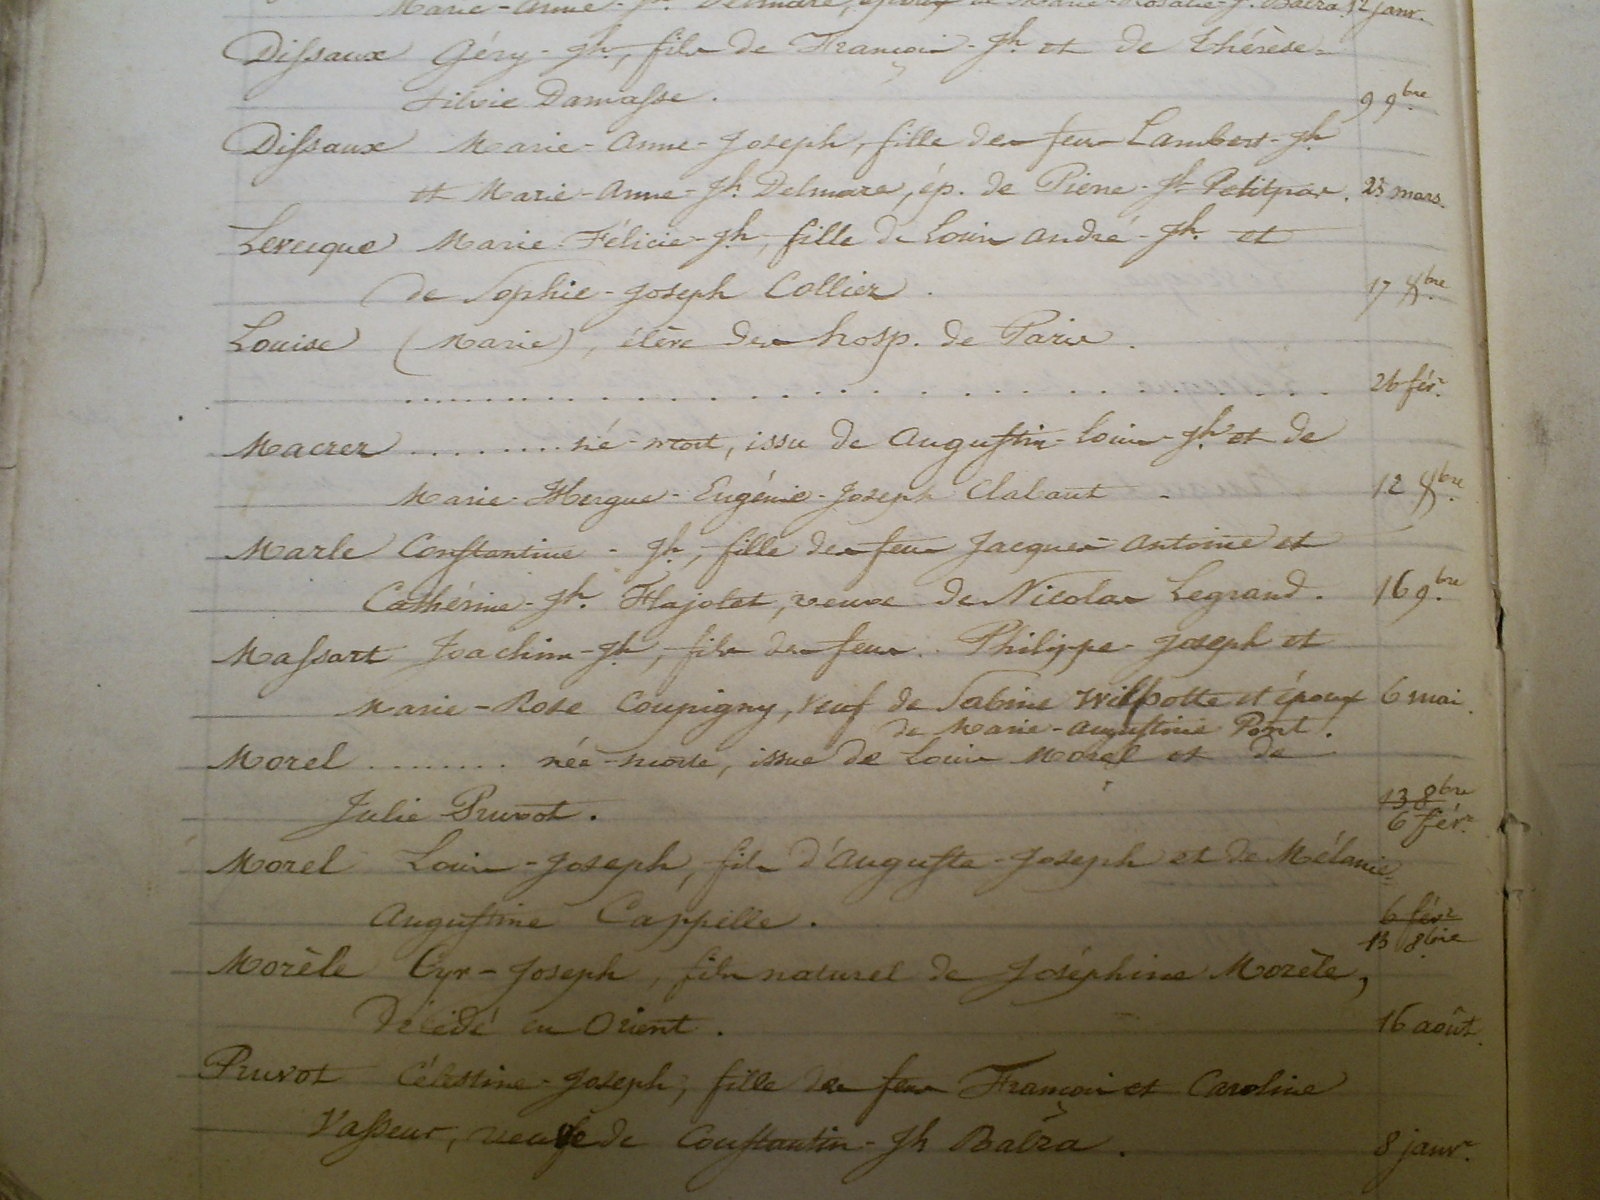 Marie-Anne-Jh. Delmare, époux de Marie-Rosalie-J. Balza 12 janv.
Dissaux Géry-Jh., fils de François-Jh et de Thérèse-
Silvie Damasse. 9 9bre
Dissaux Marie-Anne-Joseph, fille des feus Lambert-Jh
et Marie-Anne-Jh. Delmare, ép. de Pierre-Jh Petitpas. 23 mars.
Levecque Marie-Félicie-Jh, fille de Louis André-Jh. et
de Sophie-Joseph Collier. 17 8bre
Louise (Marie), élève des hosp. de Paris.
........................................ 26 févr.
Macrez ........ né-mort, issu de Augustin-Louis-Jh et de
Marie-Hergue-Eugénie-Joseph Clabaut - 12 8bre
Marle Constantine-Jh., fille des feus Jacques-Antoine et
Cathérine-Jh. Flajolet, veuve de Nicolas Legrand. 16 9bre
Massart Joachim-Jh, fils des feus Philippe-Joseph et
Marie-Rose Coupigny, veuf de Sabine Willotte et époux 6 mai.
de Marie-Augustine Pont.
Morel ........ née-morte, issue de Louis Morel et de
Julie Pruvot. 13 8bre
6 févr.
Morel Louis-Joseph, fils d'Auguste-Joseph et de Mélanie-
Augustine Cappelle. 6 févr
13 8bre
Morèle Cyr-Joseph, fils naturel de Joséphine Morèle,
Décédé en Orient. 16 août.
Pruvot Célestine-Joseph, fille des feus François et Caroline
Vasseur, veuve de Constantin-Jh Balza. 8 janvr.